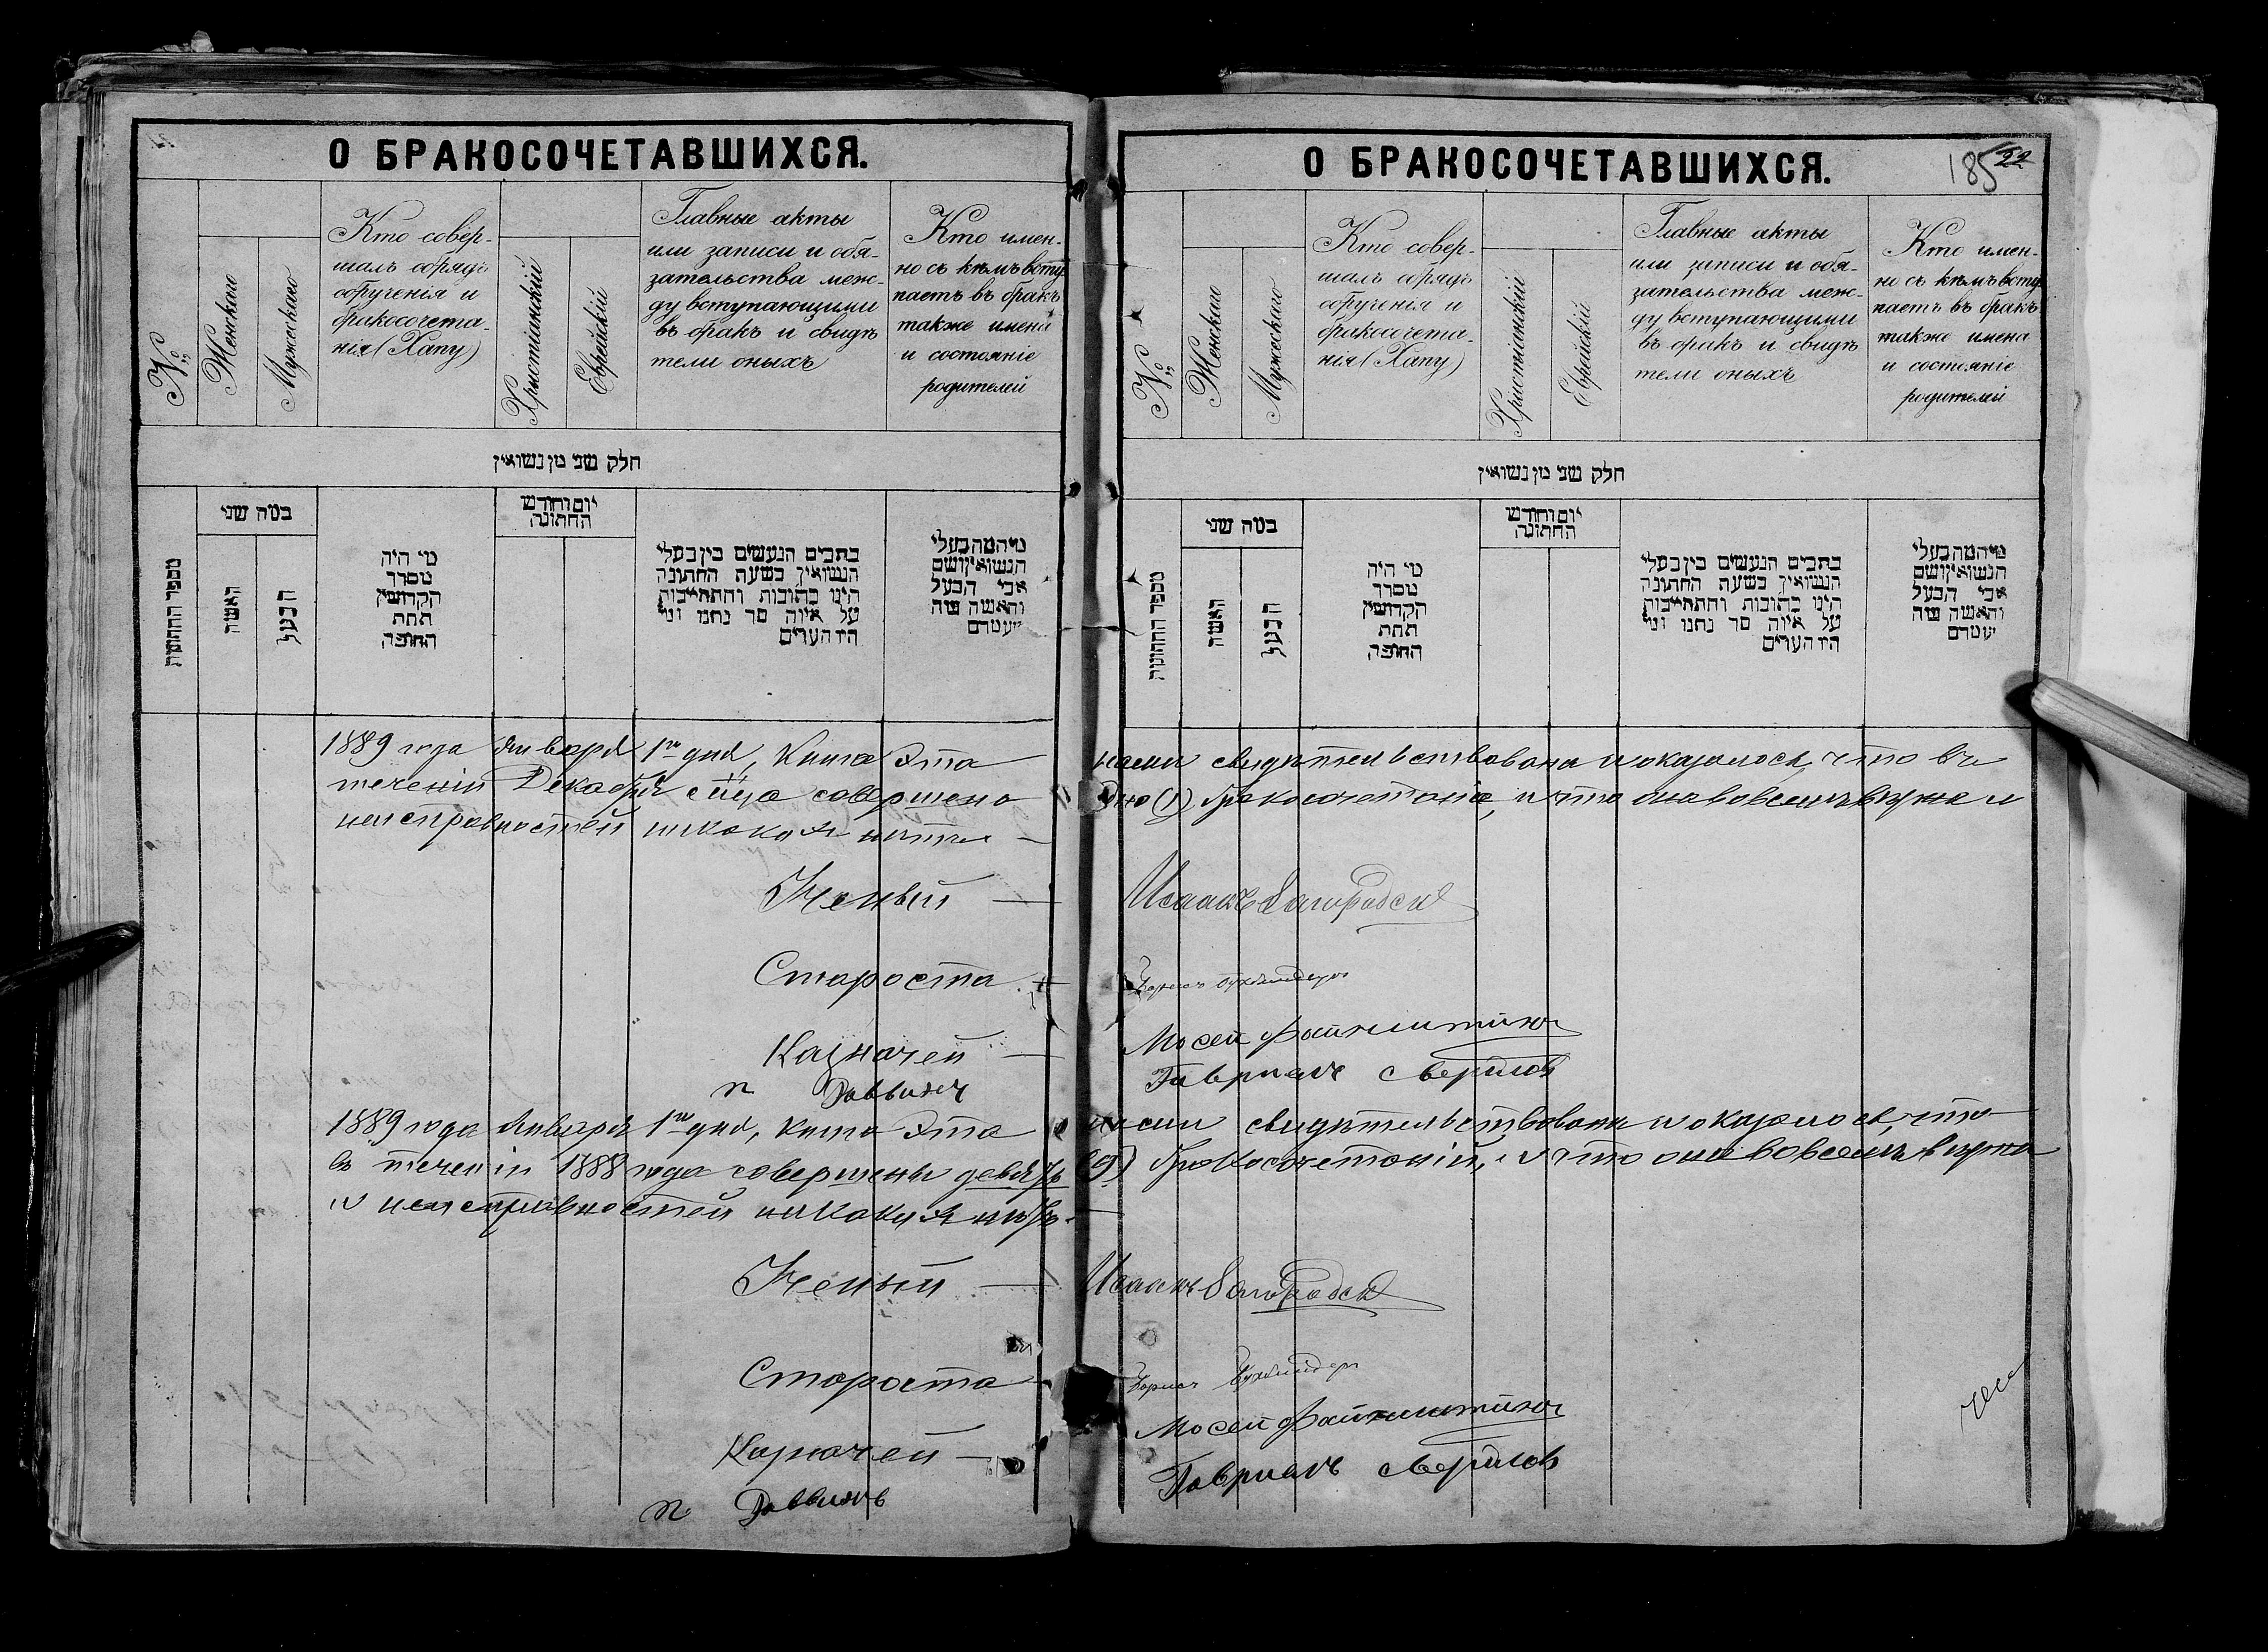 О БРАКОСОЧЕТАВШИХСЯ.
№
Женскаго
Мужескаго
Кто совер-
шалъ обрядъ
обрученія и
бракосочета-
нія (Хапу)
Христіанскій
Еврейскій
Главные акты
или записи и обя-
зательства меж-
ду вступающими
въ бракъ и свидѣ
тели оныхъ
Кто имен-
но съ кѣмъ всту
паетъ въ бракъ
также имена
и состояніе
родителей
חלק שני מן נשואין
מספר החתונות
במה שני
האשה
הבעל
מי היה
מסדר
הקדושין
תחת
החופה
יום וחודש
החתונה
כתבים הנעשים בין בעלי
הנשואין בשעת החתונה
היינו כתובות והתחייבות
על איזה סך נתנו ומי
היו העדים
מי המה בעלי
הנשואין ושם
אבי הבעל
והאשה ומה
מעמדם
1889 года Января 1го дня, Книга эта
теченіи Декабря м-ца совершено
неисправностей никакихъ нѣтъ —
Ученый —
Староста
Казначей —
п Раввинъ
1889 года Января 1го дня, книга эта
въ теченіи 1888 года совершены девять
и неисправностей никакихъ нѣтъ.
Ученый —
Староста
Казначей —
п Раввинъ
О БРАКОСОЧЕТАВШИХСЯ.
185 22
№
Женскаго
Мужескаго
Кто совер-
шалъ обрядъ
обрученія и
бракосочета-
нія (Хапу)
Христіанскій
Еврейскій
Главные акты
или записи и обя-
зательства меж-
ду вступающими
въ бракъ и свидѣ
тели оныхъ
Кто имен-
но съ кѣмъ всту
паетъ въ бракъ
также имена
и состояніе
родителей
חלק שני מן נשואין
מספר החתונות
במה שני
האשה
הבעל
מי היה
מסדר
הקדושין
תחת
החופה
יום וחודש
החתונה
כתבים הנעשים בין בעלי
הנשואין בשעת החתונה
היינו כתובות והתחייבות
על איזה סך נתנו ומי
היו העדים
מי המה בעלי
הנשואין ושם
אבי הבעל
והאשה ומה
מעמדם
нами свидѣтельствована и оказалось, что въ
одно (1) бракосочетаніе, и что она вовсемъ вѣрна и
Исаакъ
Борисъ Бухбиндеръ
Мосей Файнштейнъ
Гавриилъ Свердловъ
нами свидѣтельствована и оказалось, что
(9) бракосочетаній, и что она вовсемъ вѣрна
Исаакъ
Борисъ Бухбиндеръ
Мосей Файнштейнъ
Гавриилъ Свердловъ